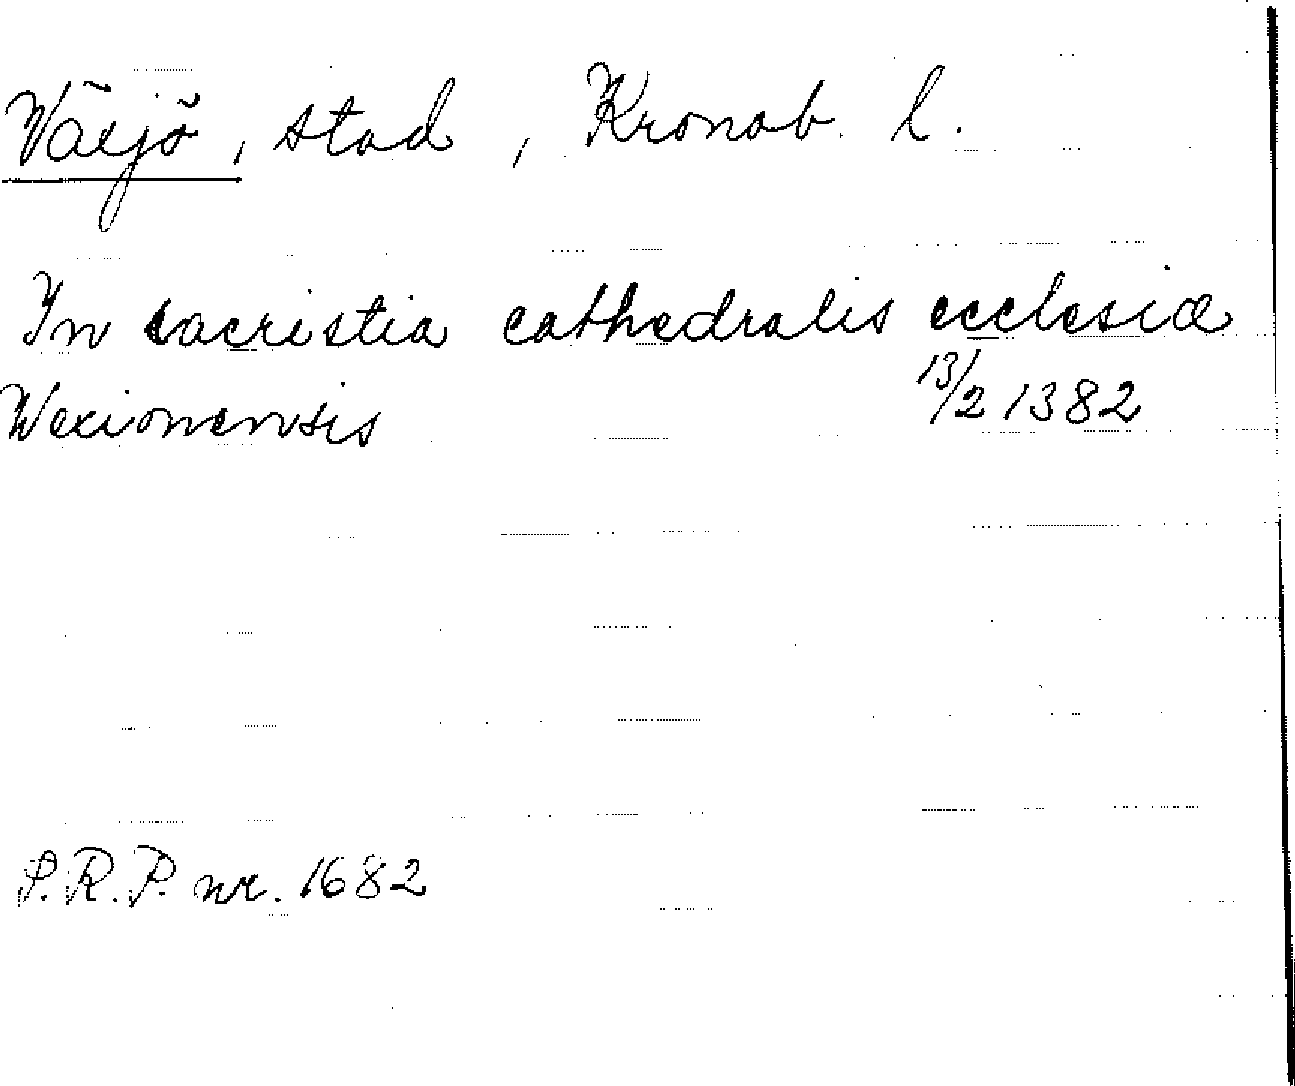 Växjö, stad, Kronob. l.
In sacristia cathedralis ecclesiæ
Wexionensis 13/2 1382
S.R.P. nr. 1682